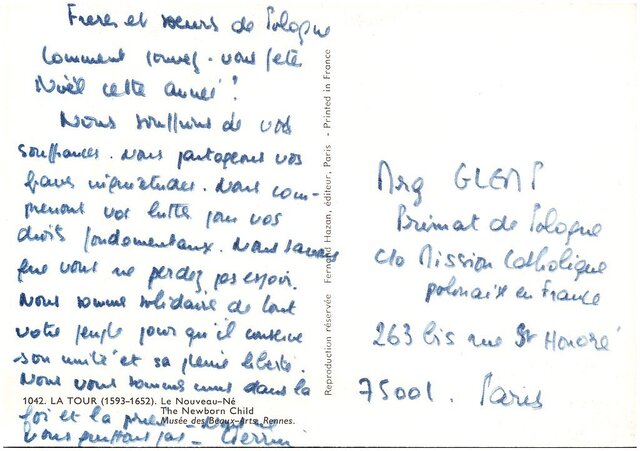 Freres et soeurs de Pologne
Comment pouvez-vous fêter
Noël cette année !
Nous souffrons de vos
souffrances. Nous partageons vos
graves inquiétudes. Nous com-
prenons vos luttes pour vos
droits fondamentaux. Nous savons
que vous ne perdez pas espoir.
Nous sommes solidaire de tout
votre peuple pour qu'il conserve
son unité et sa pleine liberté.
Nous vous sommes unis dans la
foi et la prière
vous quittons pas -
1042. LA TOUR (1593-1652). Le Nouveau-Né
The Newborn Child
Musée des Beaux-Arts, Rennes.
Reproduction réservée Fernand Hazan, éditeur, Paris - Printed in France
Mrg GLEMP
Primat de Pologne
c/o Mission Catholique
polonaise en France
263 bis rue St Honoré
75001. Paris